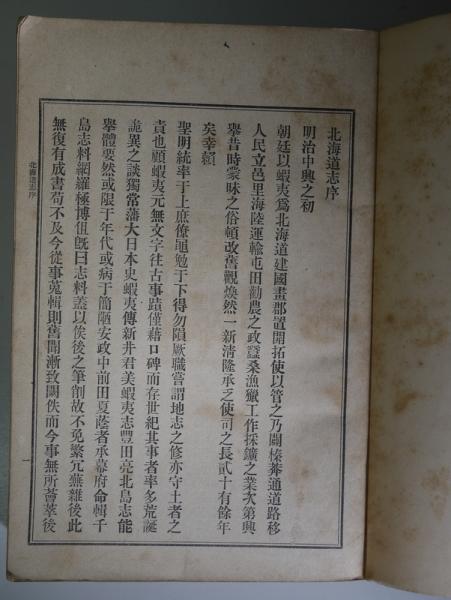 北海道志序
明治中興之初
朝廷以蝦夷爲北海道建國畫郡置開拓使以管之乃闢榛莽通道路移
人民立邑里海陸運輸屯田勸農之政蠶桑漁獵工作採鑛之業次第興
擧昔時蒙昧之俗頓改舊觀煥然一新清隆承乏使司之長貳十有餘年
矣幸賴
聖明統率于上庶僚黽勉于下得勿隕厥職嘗謂地志之修亦守土者之
責也顧蝦夷元無文字往古事蹟僅藉口碑而存世紀其事者率多荒誕
詭異之談獨常藩大日本史蝦夷傳新井君美蝦夷志豐田亮北島志能
擧體要然或限于年代或病于簡陋安政中前田夏蔭者承幕府命輯千
島志料網羅極博但旣曰志料蓋以俟後之筆削故不免繁冗蕪雜後此
無復有成書苟不及今從事蒐輯則舊聞漸致闕佚而今事無所薈萃後
北海道志序
一